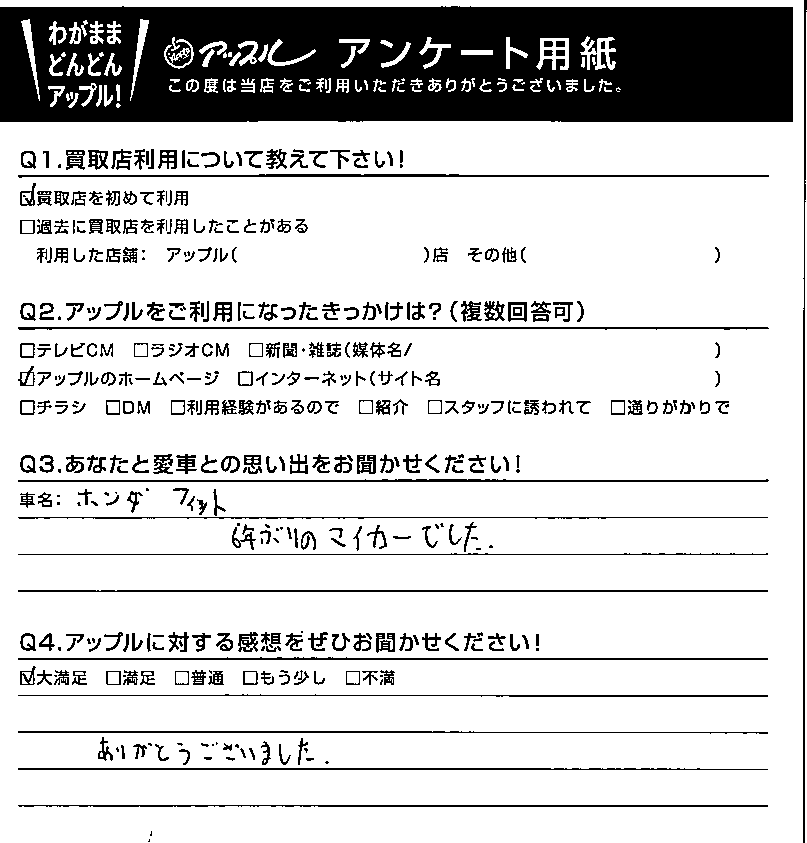 わがまま
どんどん
アップル!
アップル アンケート用紙
この度は当店をご利用いただきありがとうございました。
Q1.買取店利用について教えて下さい!
☑買取店を初めて利用
□過去に買取店を利用したことがある
利用した店舗: アップル( )店 その他( )
Q2.アップルをご利用になったきっかけは?(複数回答可)
□テレビCM □ラジオCM □新聞・雑誌(媒体名/ )
☑アップルのホームページ □インターネット(サイト名 )
□チラシ □DM □利用経験があるので □紹介 □スタッフに誘われて □通りがかりで
Q3.あなたと愛車との思い出をお聞かせください!
車名: ホンダ フィット
6年ぶりのマイカーでした.
Q4.アップルに対する感想をぜひお聞かせください!
☑大満足 □満足 □普通 □もう少し □不満
ありがとうございました.